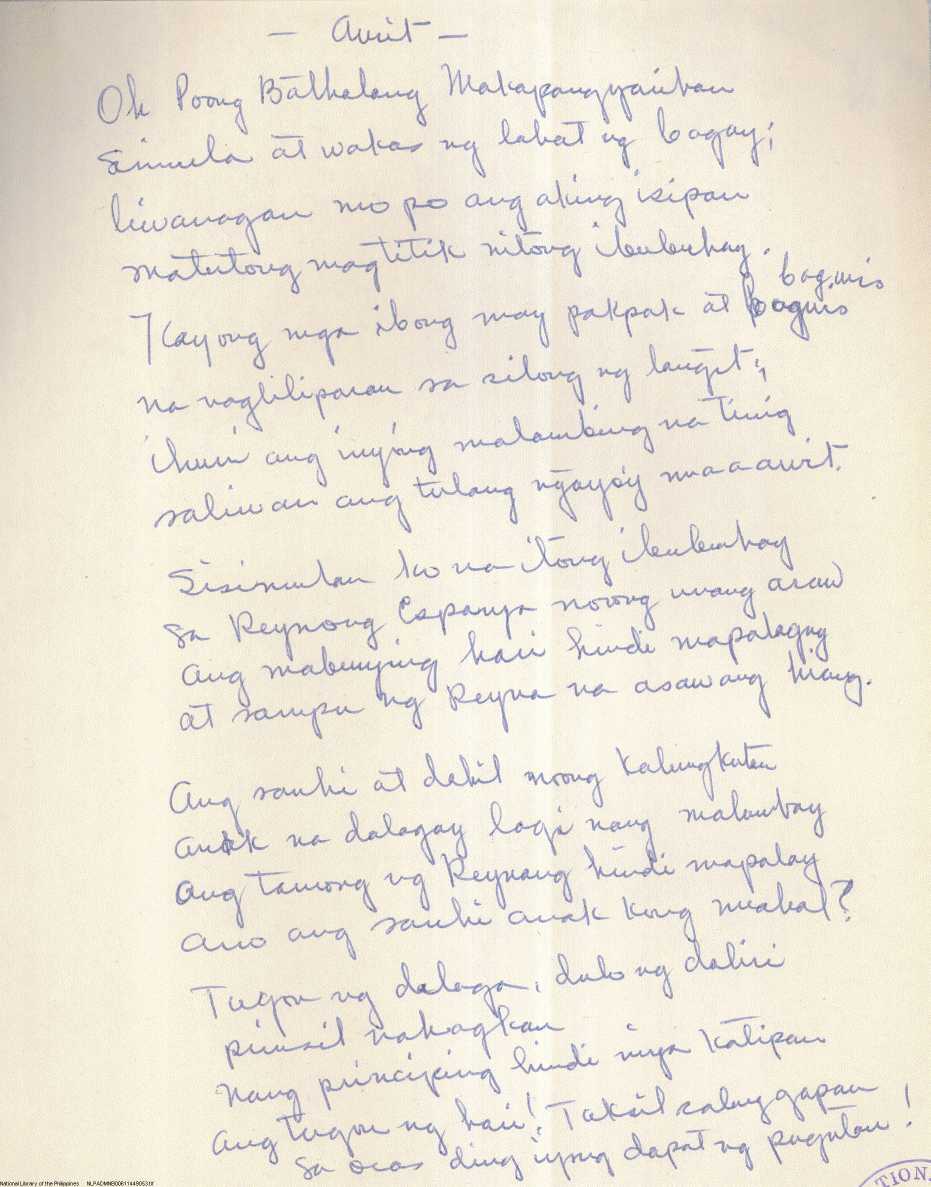 — Awit —
Oh Poong Bathalang Makapangyarihan
Simula at wakas ng lahat ng bagay;
liwanagan mo po ang aking isipan
matutong magtitik nitong ibubuhay.
bagwis
Kayong mga ibong may pakpak at bagwis
na nagliliparan sa silong ng langit;
ihuni ang inying malambing na tinig
saliwan ang tulang ngayo'y maaawit.
Sisimulan ko na itong ibubuhay
Sa Reynong Espanya noong unang araw
ang mabunying hari hindi mapalagay
at sampu ng Reyna na asawang hirang.
Ang sanhi at dahil noong kalungkutan
anak na dalagay lagi nang malumbay
ang tanong ng Reynang hindi mapalay
ano ang sanhi anak kong mahal?
Tugon ng dalaga, dulo ng daliri
pinisil nahagkan
nang principing hindi niya katipan
ang tugon ng hari! Taksil
sa oras ding iyong dapat ng pugutan!
National Library of the Philippines
TIONA